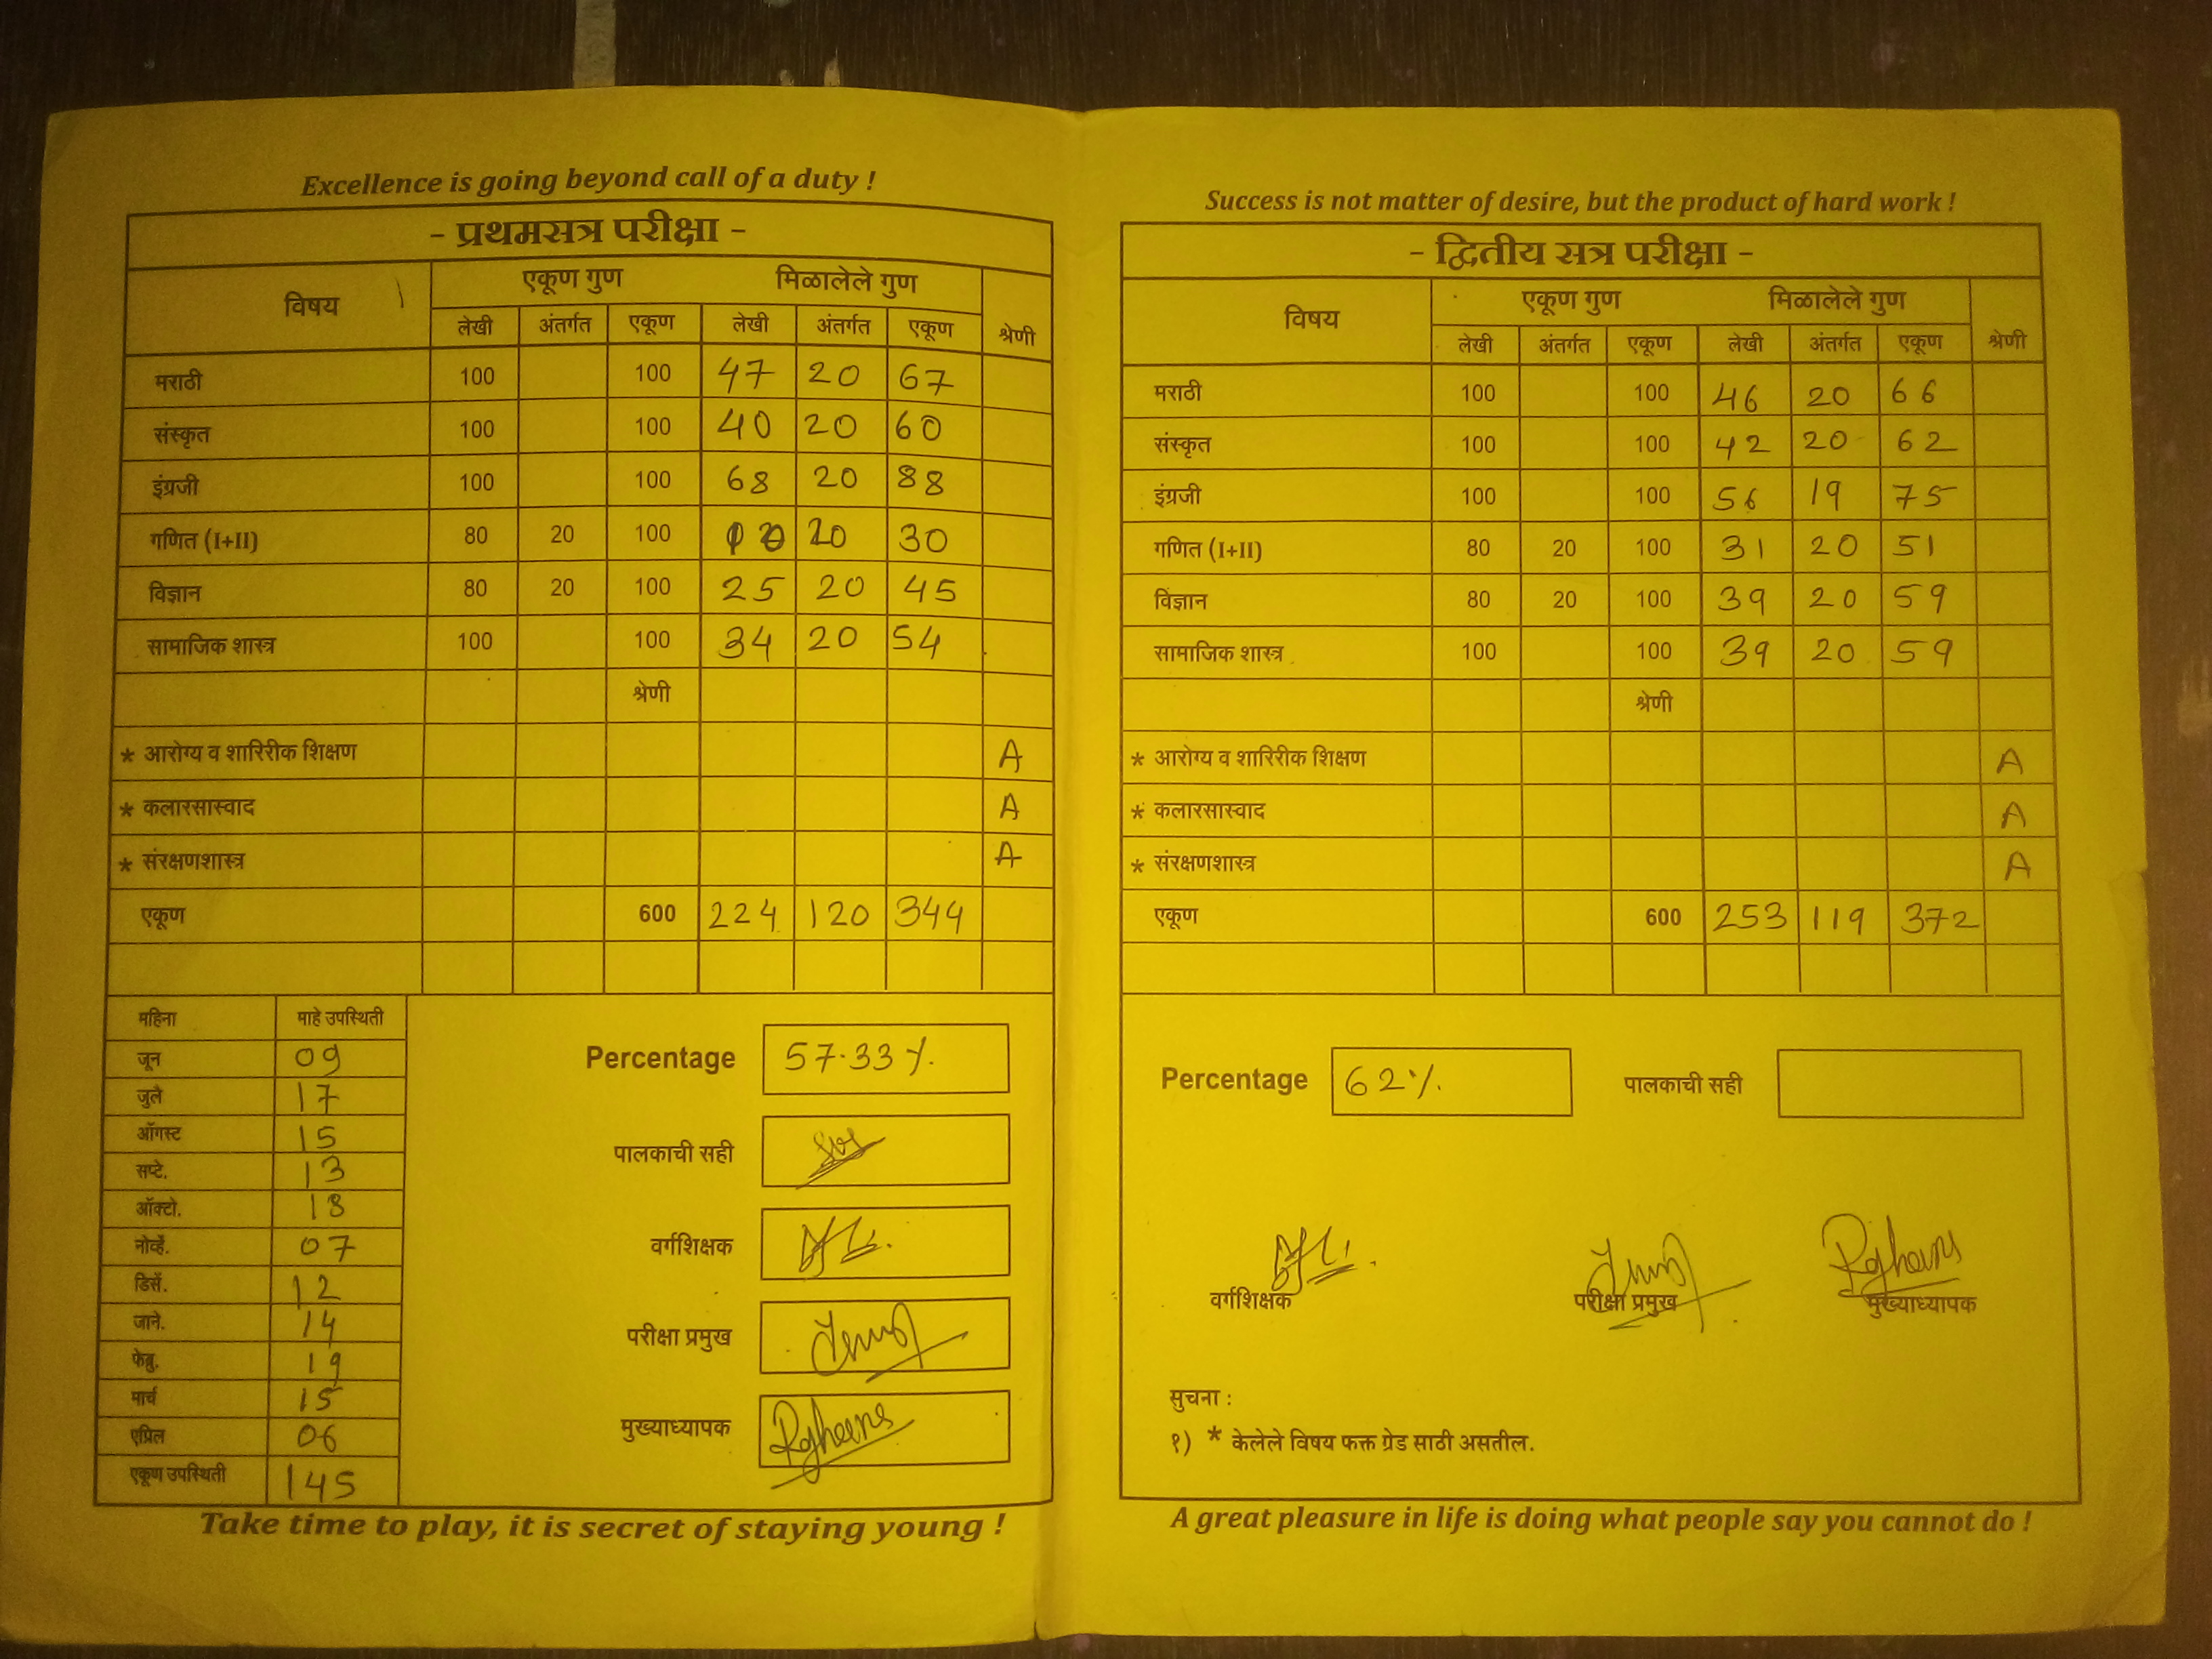 Excellence is going beyond call of a duty !
- प्रथमसत्र परीक्षा -
विषय एकूण गुण मिळालेले गुण श्रेणी
लेखी अंतर्गत एकूण लेखी अंतर्गत एकूण
मराठी 100 100 47 20 67
संस्कृत 100 100 40 20 60
इंग्रजी 100 100 68 20 88
गणित (I+II) 80 20 100 10 20 30
विज्ञान 80 20 100 25 20 45
सामाजिक शास्त्र 100 100 34 20 54
श्रेणी
* आरोग्य व शारिरीक शिक्षण A
* कलारसास्वाद A
* संरक्षणशास्त्र A
एकूण 600 224 120 344
महिना माहे उपस्थिती
जून 09
जुलै 17
ऑगस्ट 15
सप्टे. 13
ऑक्टो. 18
नोव्हें. 07
डिसें. 12
जाने. 14
फेब्रु. 19
मार्च 15
एप्रिल 06
एकूण उपस्थिती 145
Percentage 57.33 %.
पालकाची सही
वर्गशिक्षक
परीक्षा प्रमुख
मुख्याध्यापक
Take time to play, it is secret of staying young !
Success is not matter of desire, but the product of hard work !
- द्वितीय सत्र परीक्षा -
विषय एकूण गुण मिळालेले गुण श्रेणी
लेखी अंतर्गत एकूण लेखी अंतर्गत एकूण
मराठी 100 100 46 20 66
संस्कृत 100 100 42 20 62
इंग्रजी 100 100 56 19 75
गणित (I+II) 80 20 100 31 20 51
विज्ञान 80 20 100 39 20 59
सामाजिक शास्त्र 100 100 39 20 59
श्रेणी
* आरोग्य व शारिरीक शिक्षण A
* कलारसास्वाद A
* संरक्षणशास्त्र A
एकूण 600 253 119 372
Percentage 62%. पालकाची सही
वर्गशिक्षक परीक्षा प्रमुख मुख्याध्यापक
सुचना :
१) * केलेले विषय फक्त ग्रेड साठी असतील.
A great pleasure in life is doing what people say you cannot do !